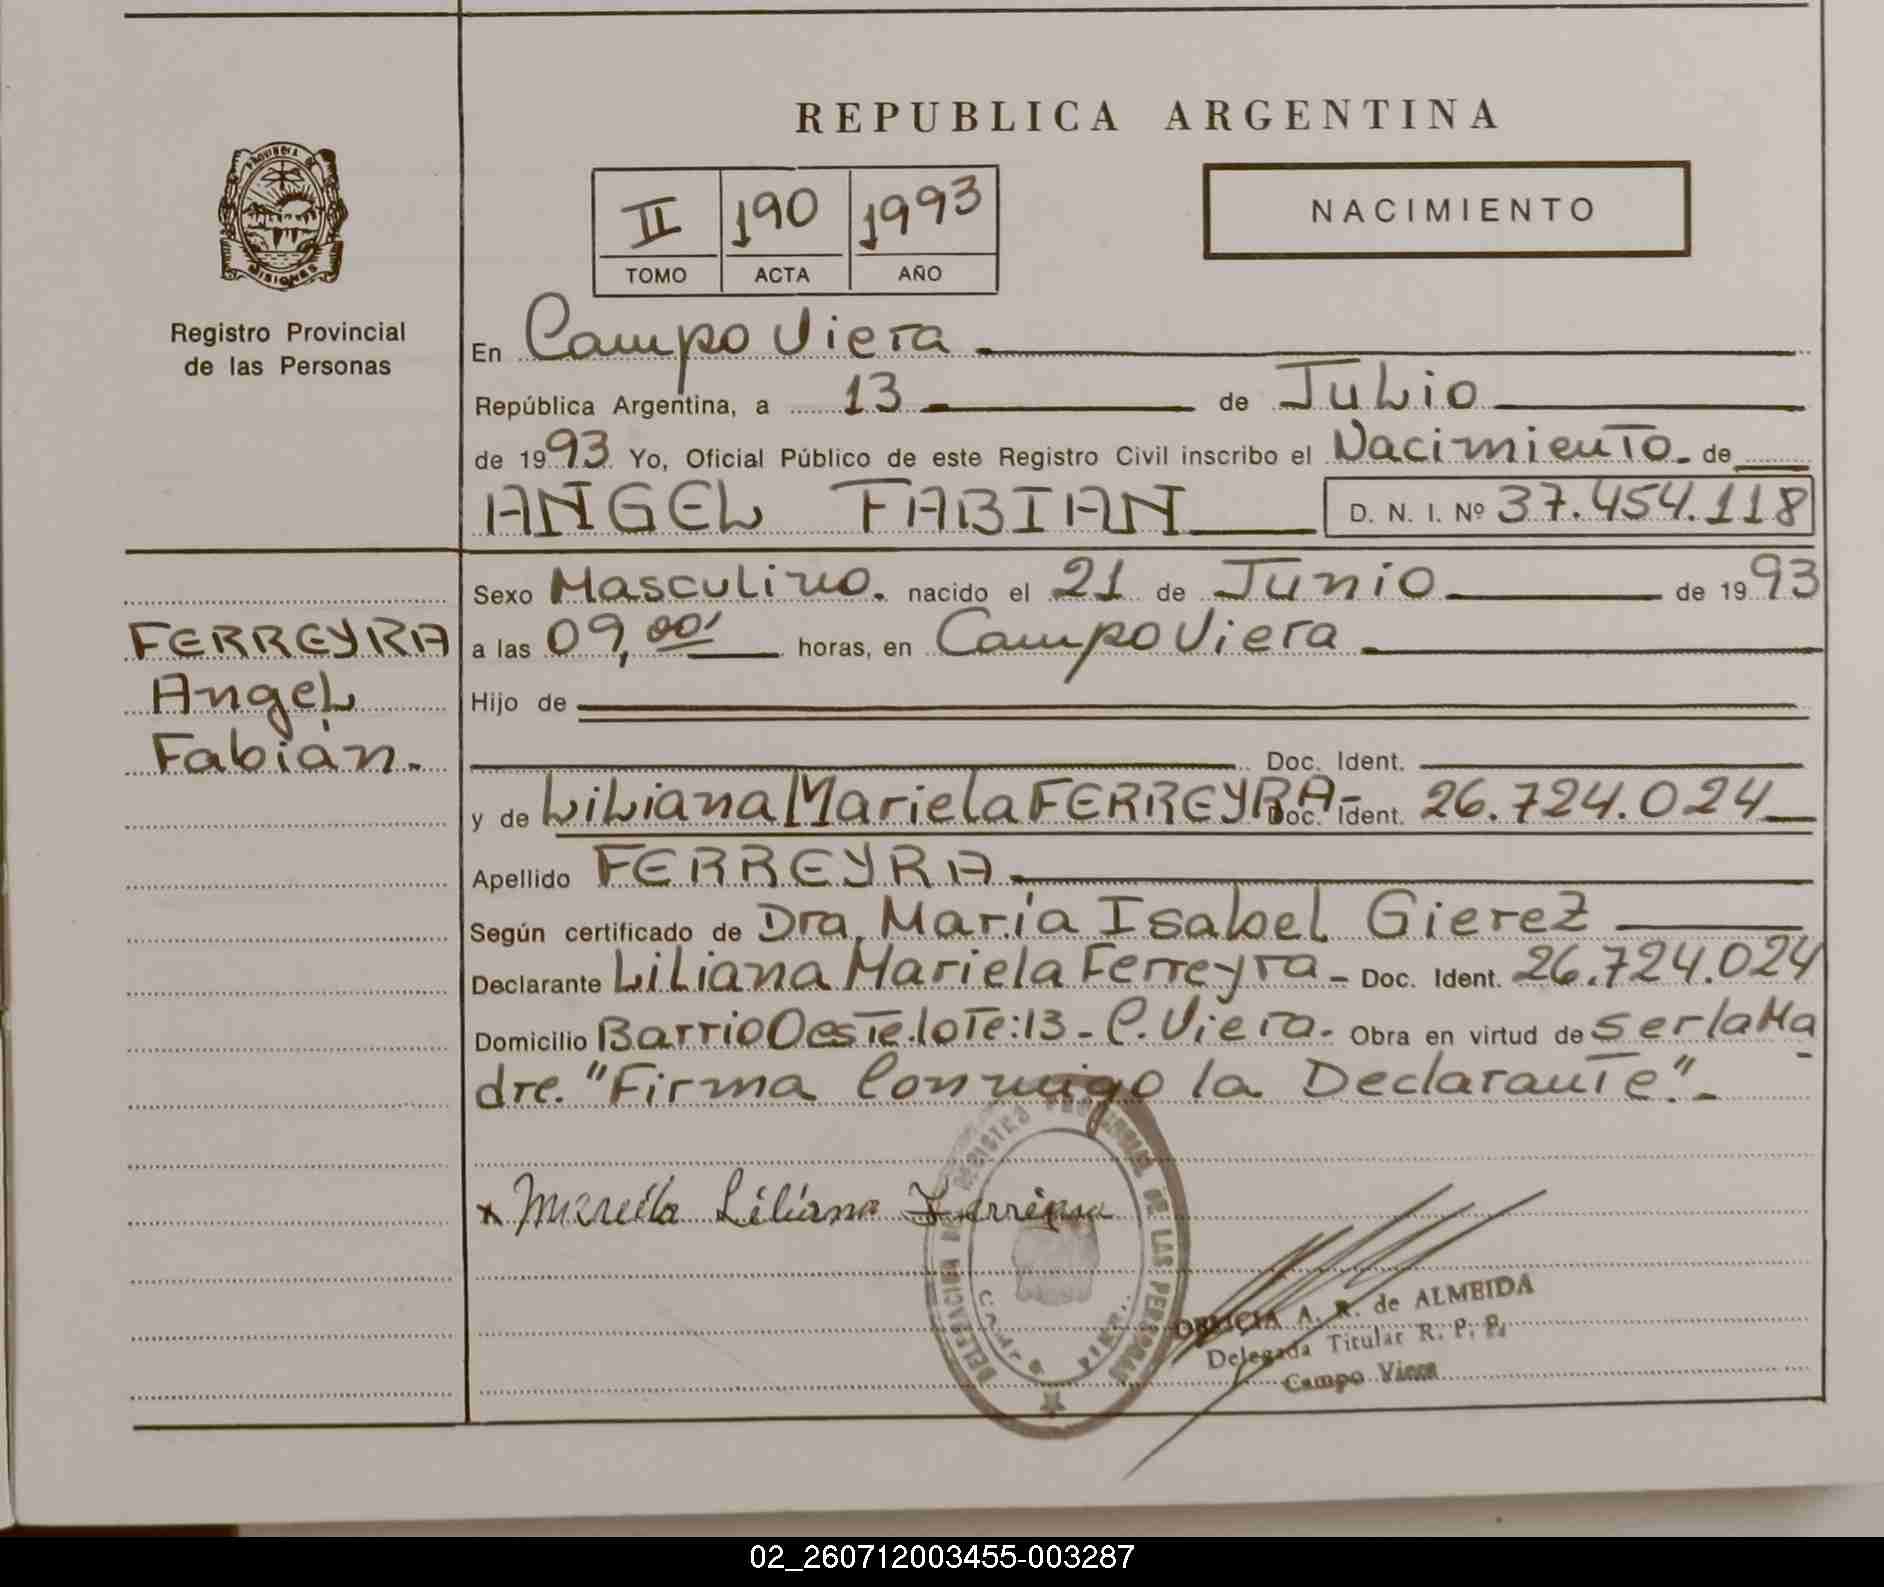 REPUBLICA ARGENTINA
PROVINCIA DE
MISIONES
Registro Provincial
de las Personas
II 190 1993
TOMO ACTA AÑO
NACIMIENTO
En Campo Viera
República Argentina, a 13 de Julio
de 1993 Yo, Oficial Público de este Registro Civil inscribo el Nacimiento de
ANGEL FABIAN D. N. I. Nº 37.454.118
FERREYRA
Angel
Fabián.
Sexo Masculino. nacido el 21 de Junio de 1993
a las 09,00' horas, en Campo Viera
Hijo de
Doc. Ident.
y de Liliana Mariela FERREYRA- Doc. Ident. 26.724.024
Apellido FERREYRA
Según certificado de Dra. María Isabel Gierez
Declarante Liliana Mariela Ferreyra - Doc. Ident. 26.724.024
Domicilio Barrio Oeste.lote:13 - C. Viera. Obra en virtud de ser la Ma
dre. "Firma Conmigo la Declarante".-
x Mariela Liliana Ferreyra
REGISTRO PROVINCIAL DE LAS PERSONAS
DELEGACION
A. R. de ALMEIDA
Delegada Titular R. P. P.
Campo Viera
02_260712003455-003287